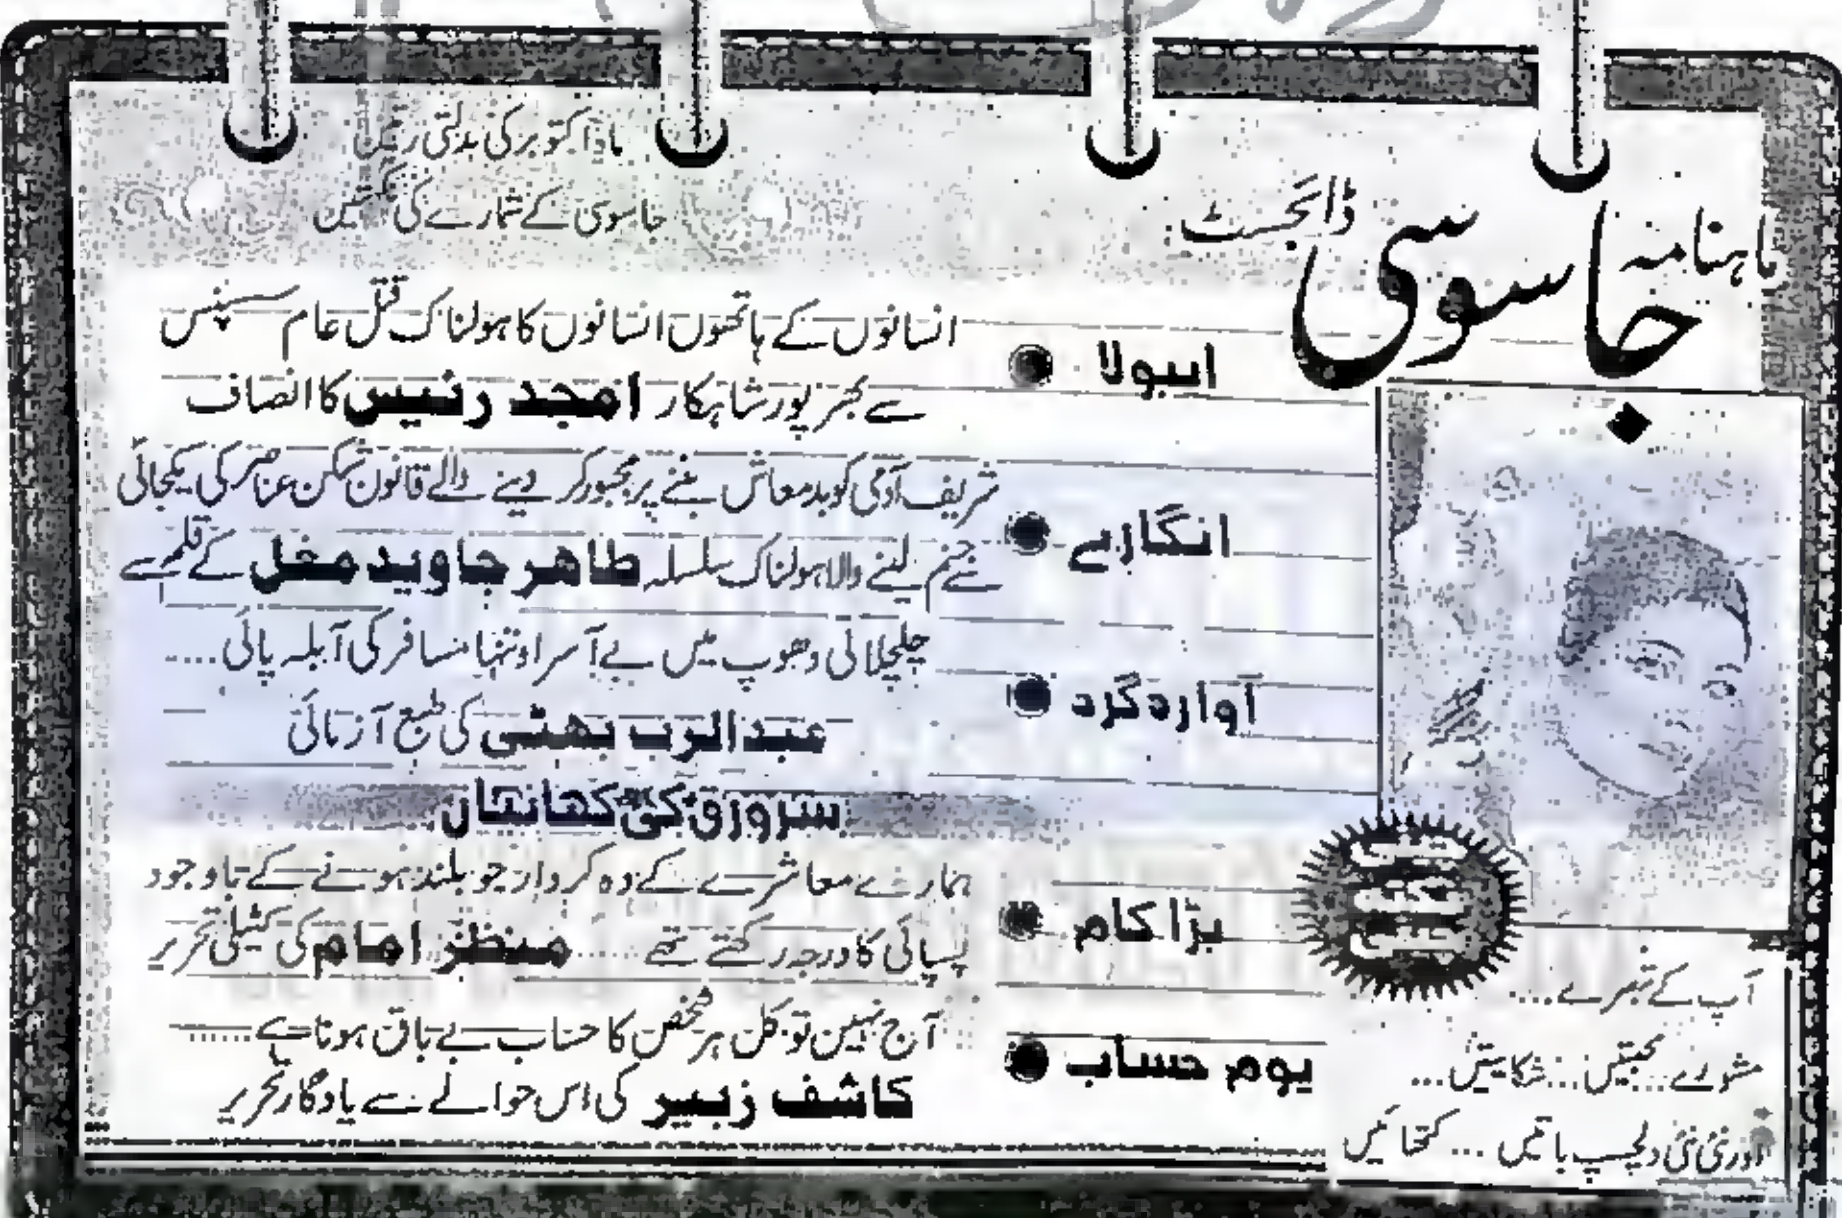 ماہنامہ
جاسوسی
ڈائجسٹ
ماہ اکتوبر کی بدلتی رتیں
جاسوسی کے شمارے کی
ایبولا
انسانوں کے ہاتھوں انسانوں کا ہولناک قتل عام سسپنس
سے بھرپور شاہکار امجد رئیس کا انصاف
انگارے
شریف آدمی کو بدمعاش بننے پر مجبور کر دینے والے قانون شکن عناصر کی یکجائی
سے جنم لینے والا ہولناک سلسلہ طاہر جاوید مغل کے قلم سے
آوارہ گرد
چلچلاتی دھوپ میں بے آسرا و تنہا مسافر کی آبلہ پائی....
عبدالرب بھٹی کی طبع آزمائی
سرورق کی کہانیاں
بڑا کام
ہمارے معاشرے کے وہ کردار جو بلند ہونے کے باوجود
پسپائی کا درجہ رکھتے تھے..... منظر امام کی کٹیلی تحریر
یوم حساب
آج نہیں تو کل ہر شخص کا حساب بے باق ہونا ہے......
کاشف زبیر کی اس حوالے سے یادگار تحریر
آپ کے تبصرے....
مشورے... محبتیں... شکایتیں...
اور نئی نئی دلچسپ باتیں... کتھائیں